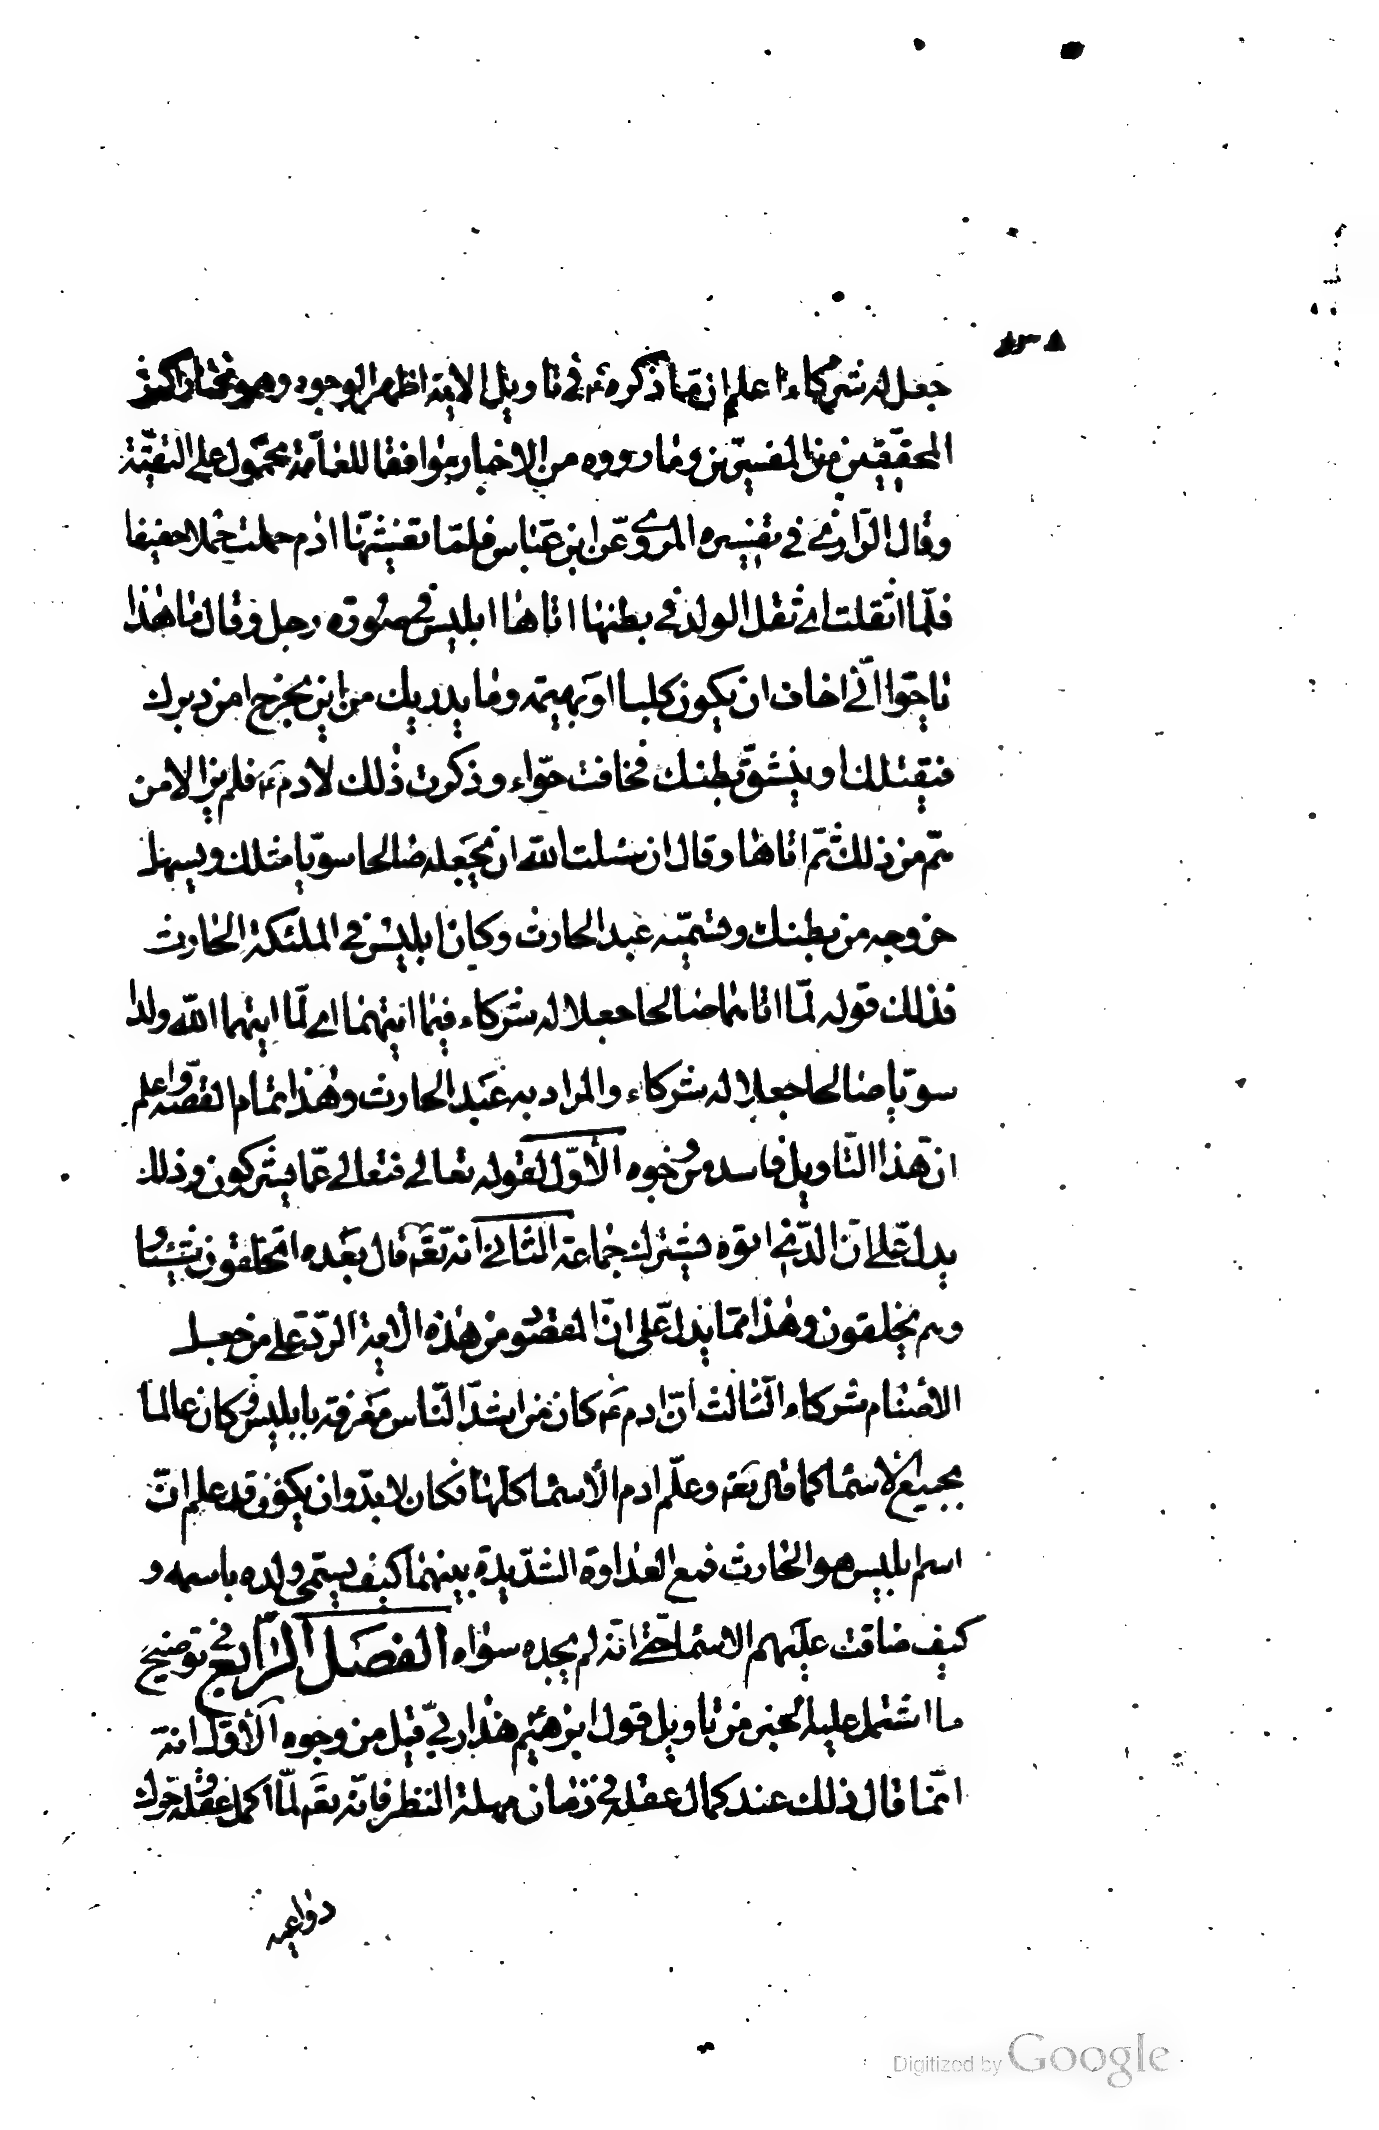 ٨٣٨
جعل له شركاء اعلم ان ما ذكره ع في تاويل الاية اظهر الوجوه وهو مختار اكثر
المحققين من المفسرين وما رووه من الاخبار موافقا للعامة محمول على التقية
وقال الرازي في تفسيره المروي عن ابن عباس فلما تغشيها ادم حملت حملا خفيفا
فلما اثقلت اي ثقل الولد في بطنها اتاها ابليس في صورة رجل وقال ما هذا
يا حوا اني اخاف ان يكون كلبا او بهيمة وما يدريك من اين يخرج امن دبرك
فيقتلك او ينشق بطنك فخافت حواء وذكرت ذلك لادم ع فلم يزالا من
هم من ذلك ثم اتاها وقال ان سئلت الله ان يجعله صالحا سويا مثلك ويسهل
خروجه من بطنك وتسميه عبد الحارث وكان ابليس في الملئكة الحارث
فذلك قوله لما اتاهما صالحا جعلا له شركاء فيما اتيهما اي لما اتيهما الله ولدا
سويا صالحا جعلا له شركاء والمراد به عبد الحارث وهذا تمام القصة واعلم
ان هذا التاويل فاسد من وجوه الأول لقوله تعالى فتعالى عما يشركون وذلك
يدل على ان الذي اتوه بشرك جماعة الثاني انه تعه قال بعده اتخلقون شيئا و
هم يخلقون وهذا مما يدل على ان المقصود من هذه الاية الرد على من جعل
الأصنام شركاء الثالث ان ادم ع كان من اشد الناس معرفة بابليس وكان عالما
بجميع الاسماء كما قال تعه وعلم ادم الأسماء كلها فكان لا بد وان يكون قد علم ان
اسم ابليس هو الحارث فمع العداوة الشديدة بينهما كيف يسمي ولده باسمه و
كيف ضاقت عليهم الاسماء حتى انه لم يجد سواه الفصل الرابع في توضيح
ما اشتمل عليه الخبر من تاويل قول ابرهيم هذا ربي قيل من وجوه الأول انه
انما قال ذلك عند كمال عقله في زمان مهلة النظر فانه تعه لما اكمل عقله وحرك
دواعيه
Digitized by Google